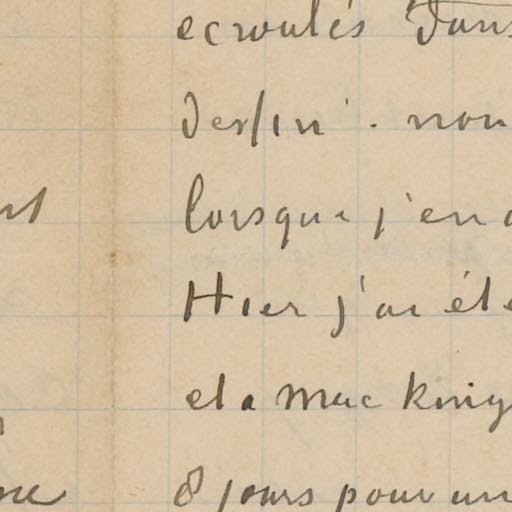 ecroulés dans
destin. nou
lorsque j'en a
Hier j'ai été
et a Mac Knig
8 jours pour un